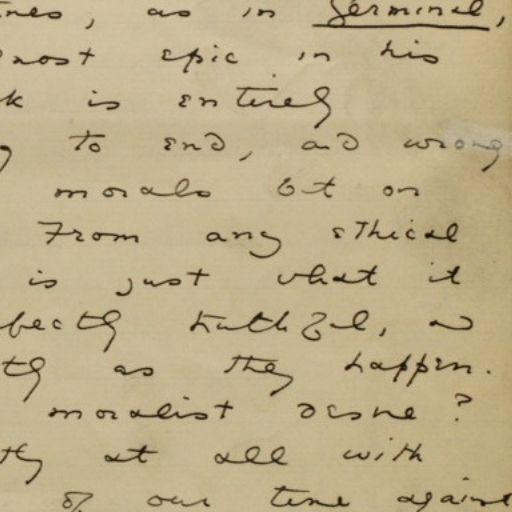 nes, as in Germinal,
most epic in his
k is entirely
g to end, and wrong
morals but on
From any ethical
is just what it
fectly truthful, and
tly as they happen.
moralist desire?
tly at all with
of our time against